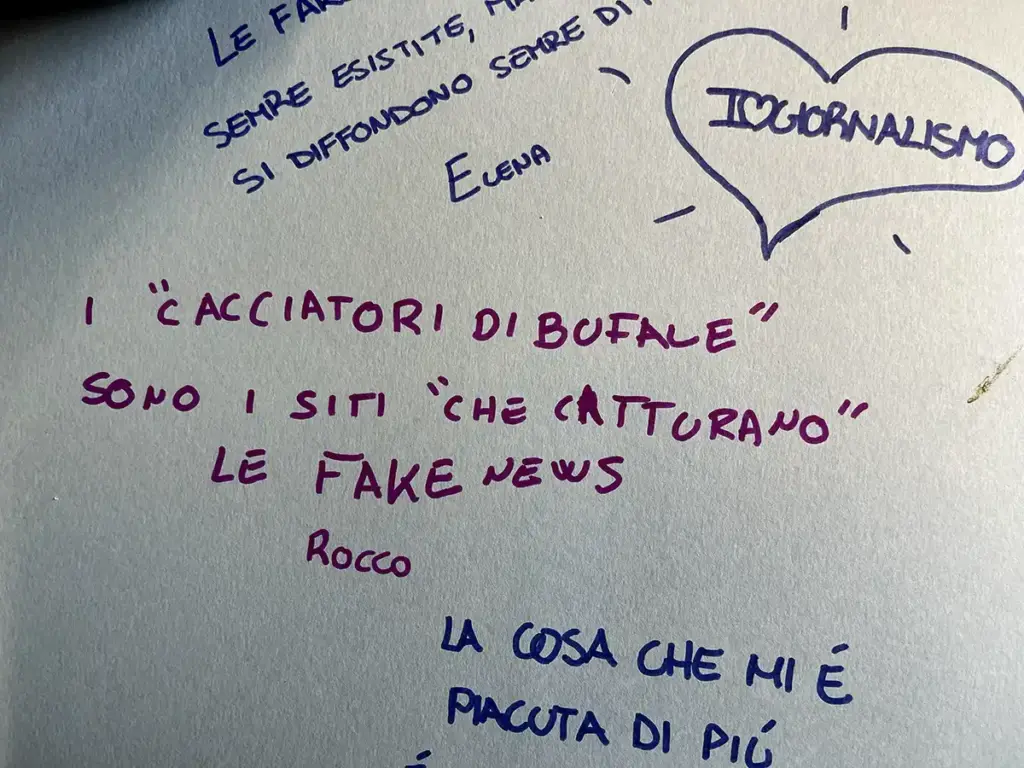 LE
SEMRE ESISTITE,
SI DIFFONDONO SEMRE DI
ELENA
I♡GIORNALISMO
I "CACCIATORI DI BUFALE"
SONO I SITI "CHE CATTURANO"
LE FAKE NEWS
ROCCO
LA COSA CHE MI É
PIACUTA DI PIÚ